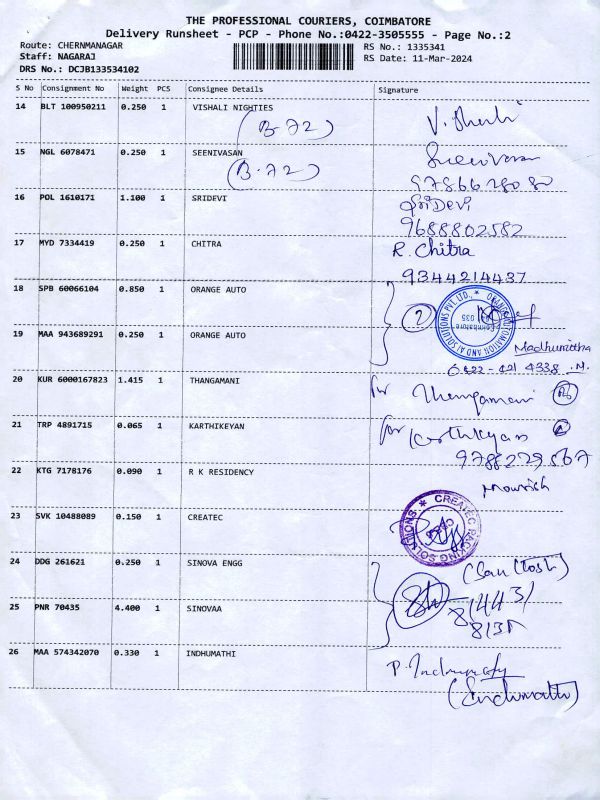 THE PROFESSIONAL COURIERS, COIMBATORE
Delivery Runsheet - PCP - Phone No.:0422-3505555 - Page No.:2
Route: CHERNMANAGAR RS No.: 1335341
Staff: NAGARAJ RS Date: 11-Mar-2024
DRS No.: DCJB133534102
S No Consignment No Weight PCS Consignee Details Signature
14 BLT 100950211 0.250 1 VISHALI NIGHTIES
(B-72)
15 NGL 6078471 0.250 1 SEENIVASAN
(B-72)
16 POL 1610171 1.100 1 SRIDEVI SriDevi
9688802582
17 MYD 7334419 0.250 1 CHITRA R. Chitra
9344214437
18 SPB 60066104 0.850 1 ORANGE AUTO
19 MAA 943689291 0.250 1 ORANGE AUTO
20 KUR 6000167823 1.415 1 THANGAMANI for Thangamani
21 TRP 4891715 0.065 1 KARTHIKEYAN for Karthikeyan
22 KTG 7178176 0.090 1 R K RESIDENCY
23 SVK 10488089 0.150 1 CREATEC CREATEC PACKING SOLUTIONS
24 DDG 261621 0.250 1 SINOVA ENGG
25 PNR 70435 4.400 1 SINOVAA
26 MAA 574342070 0.330 1 INDHUMATHI